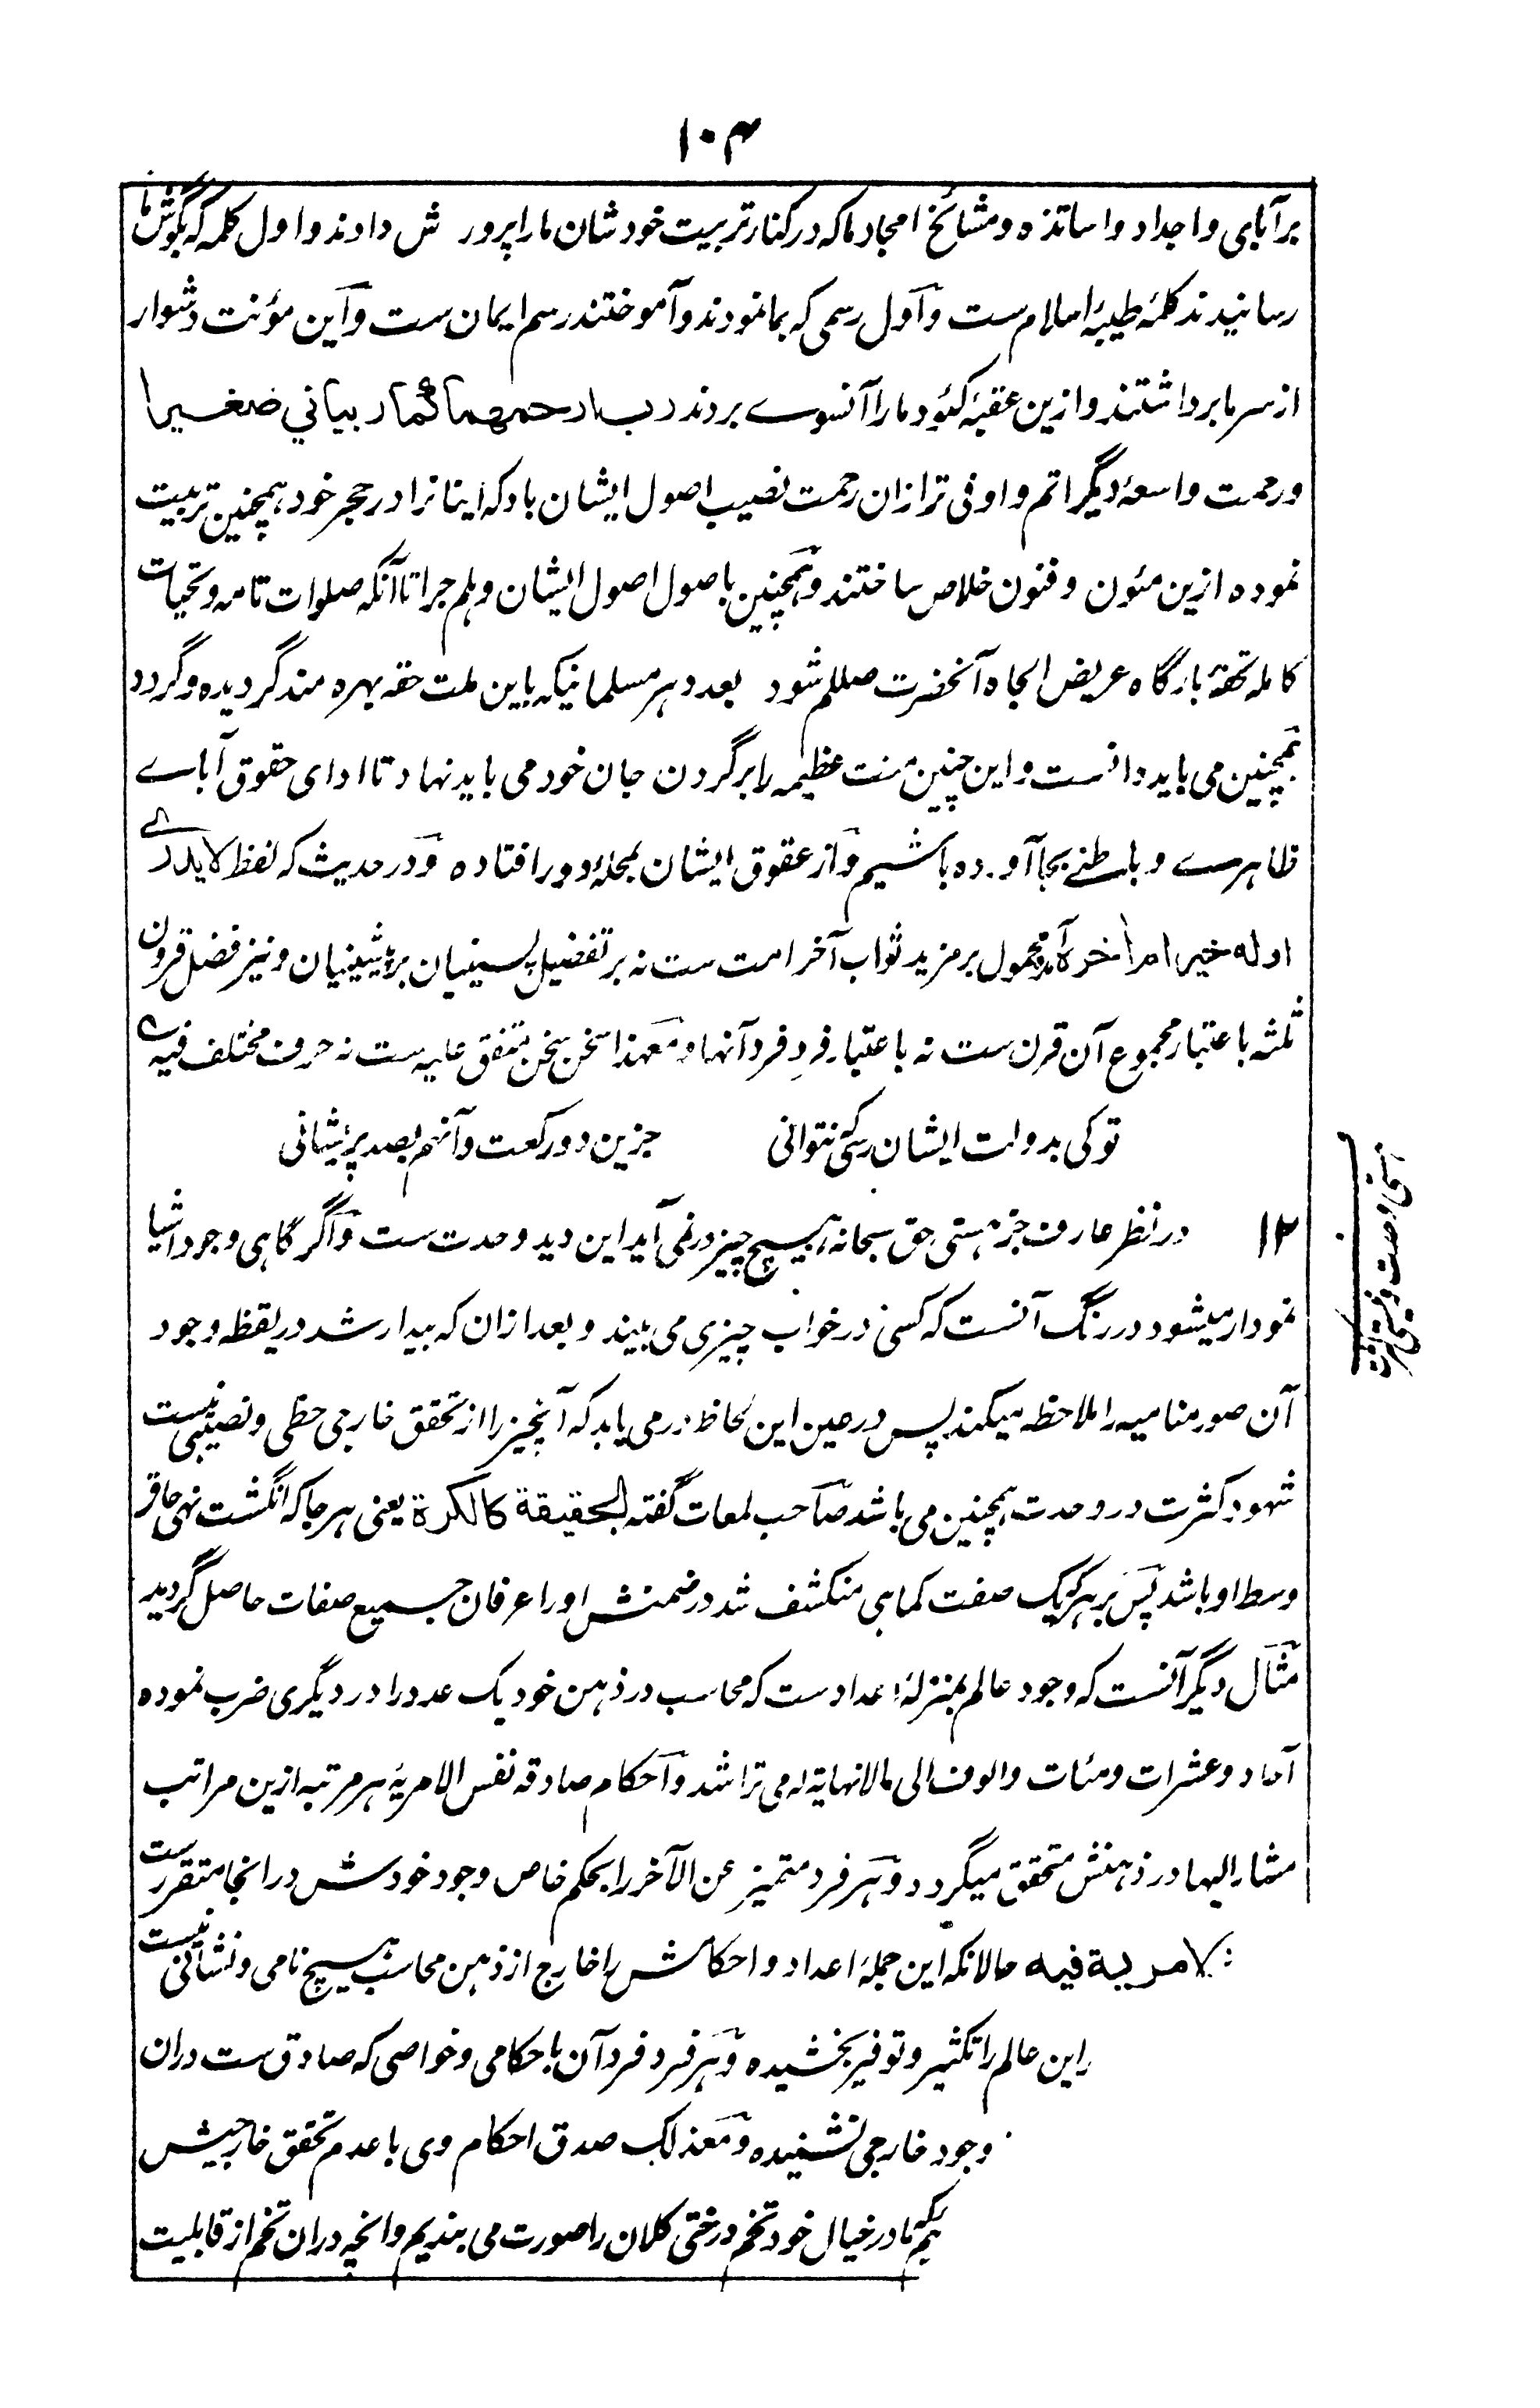 ۱۰۴
بر آبای و اجداد و اساتذه و مشائخ امجاد ما که در کنار تربیت خود شان ما را پرورش دادند و اول کلمه که بگوش ما
رسانیدند کلمهٔ طیبهٔ اسلام ست و اول رسمی که بما نمودند و آموختند رسم ایمان ست و این مؤنت دشوار
از سر ما برداشتند و ازین عقبهٔ کئود ما را آنسوے بردند رب ارحمهما کما ربیاني صغیرا
و رحمت واسعهٔ دیگر اتم و اوفی تر ازان رحمت نصیب اصول ایشان باد که اینانرا در حجر خود همچنین تربیت
نموده ازین مئون و فنون خلاص ساختند و همچنین باصول اصول ایشان و هلم جرا تا آنکه صلوات تامه و تحیات
کامله تحفهٔ بارگاه عریض الجاه آنحضرت صللم شود بعده هر مسلمانیکه باین ملت حقه بهره مند گردیده و گردد
همچنین می باید دانست و این چنین منت عظیمه را بر گردن جان خود می باید نهاد تا ادای حقوق آباے
ظاهرے و باطنے بجا آورده باشیم و از عقوق ایشان بمجلهٔ دور افتاده و در حدیث که لفظ لا یدرے
اوله خیر ام آخره آمده محمول بر مزید ثواب آخر امت ست نه بر تفضیل پسینیان بر پیشینیان و نیز فضل قرون
ثلثه باعتبار مجموع آن قرن ست نه باعتبار فرد فرد آنها و معهذا سخن بسخن متفق علیه ست نه حرف مختلف فیه ے
تو کی بدولت ایشان رسی که نتوانی جزین دو رکعت و آنهم بصد پریشانی
۱۲ در نظر عارف جز هستی حق سبحانه هیچ چیز در نمی آید این دید وحدت ست و اگر گاهی وجود اشیا
نمودار میشود در رنگ آنست که کسی در خواب چیزی می بیند و بعد ازان که بیدار شد در یقظه وجود
آن صور منامیه را ملاحظه میکند پس در عین این لحاظ در می یابد که آنچیز را از تحقق خارجی حظی و نصیبی نیست
شهود کثرت در وحدت همچنین می باشد صاحب لمعات گفته الحقیقة کالکرة یعنی هر جا که انگشت نهی حاق
وسط او باشد پس بر هر که یک صفت کماهی منکشف شد در ضمنش او را عرفان جمیع صفات حاصل گردید
مثال دیگر آنست که وجود عالم بمنزلهٔ اعداد ست که محاسب در ذهن خود یک عدد را در دیگری ضرب نموده
آحاد و عشرات و مئات و الوف الی مالانهایة له می تراشد و احکام صادقه نفس الامریهٔ هر مرتبه ازین مراتب
مشار الیها در ذهنش متحقق میگردد و هر فرد متمیز عن الآخر را بحکم خاص وجود خودش در انجا متقرر ست
لا مریة فیه حالانکه این جملهٔ اعداد و احکامش را خارج از ذهن محاسب هیچ نامی و نشانی نیست
این عالم را تکثیر و توفیر بخشیده و هر فرد فرد آن باحکامی و خواصی که صادق ست دران
وجود خارجی نشنیده و معذلک صدق احکام وی با عدم تحقق خارجیش
ما در خیال خود تخم درختی کلان را صورت می بندیم و انچه دران تخم از قابلیت